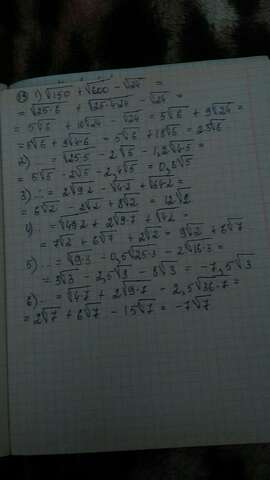 1) √150 + √600 - √24 =
= √25·6 + √25·4·24 - √24 =
= 5√6 + 10√24 - √24 = 5√6 + 9√24 =
= 5√6 + 9√4·6 = 5√6 + 18√6 = 23√6
2) ... = √25·5 - 2√5 - 1,2√4·5 =
= 5√5 - 2√5 - 2,4√5 = 0,6√5
3) ... = 2√9·2 - √4·2 + √64·2 =
= 6√2 - 2√2 + 8√2 = 12√2
4) ... = √49·2 + 2√9·7 + √4·2 =
= 7√2 + 6√7 + 2√2 = 9√2 + 6√7
5) ... = √9·3 - 0,5√25·3 - 2√16·3 =
= 3√3 - 2,5√3 - 8√3 = -7,5√3
6) .. = √4·7 + 2√9·7 - 2,5√36·7 =
= 2√7 + 6√7 - 15√7 = -7√7